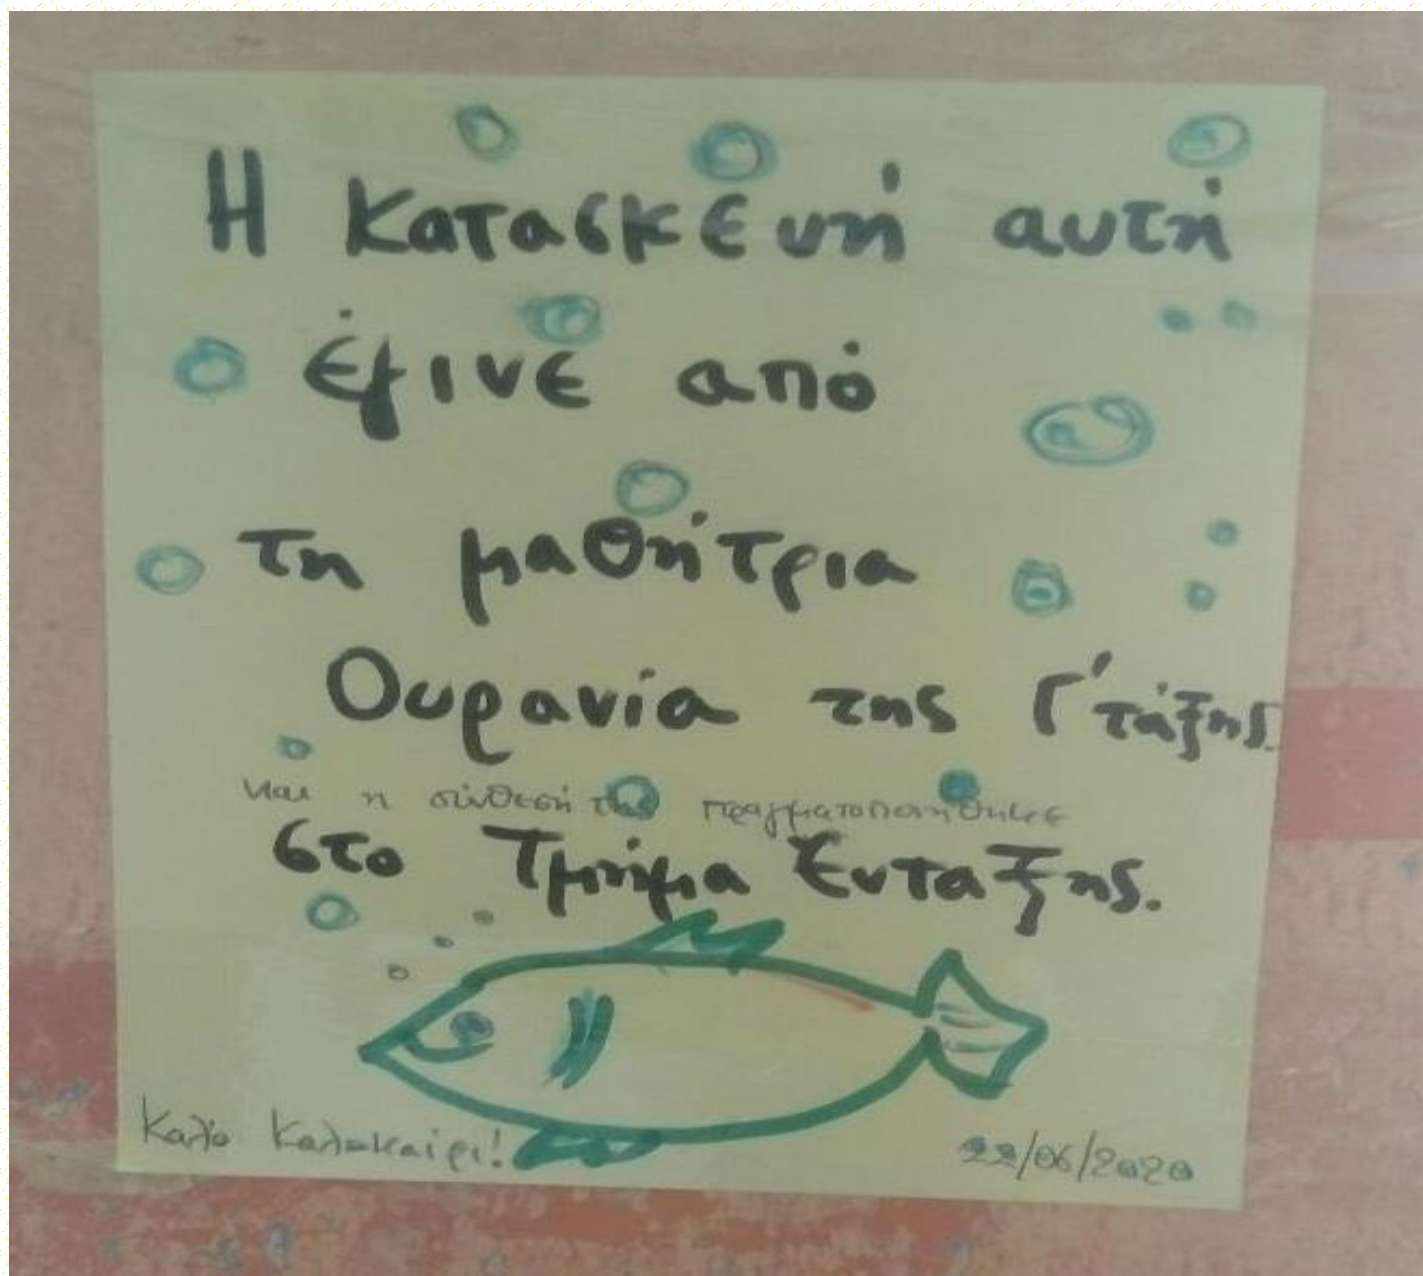 Η κατασκευή αυτή
έγινε από
τη μαθήτρια
Ουρανία της Γ' τάξης.
και η σύνθεσή της πραγματοποιήθηκε
στο Τμήμα Ένταξης.
Καλό Καλοκαίρι!
22/06/2020